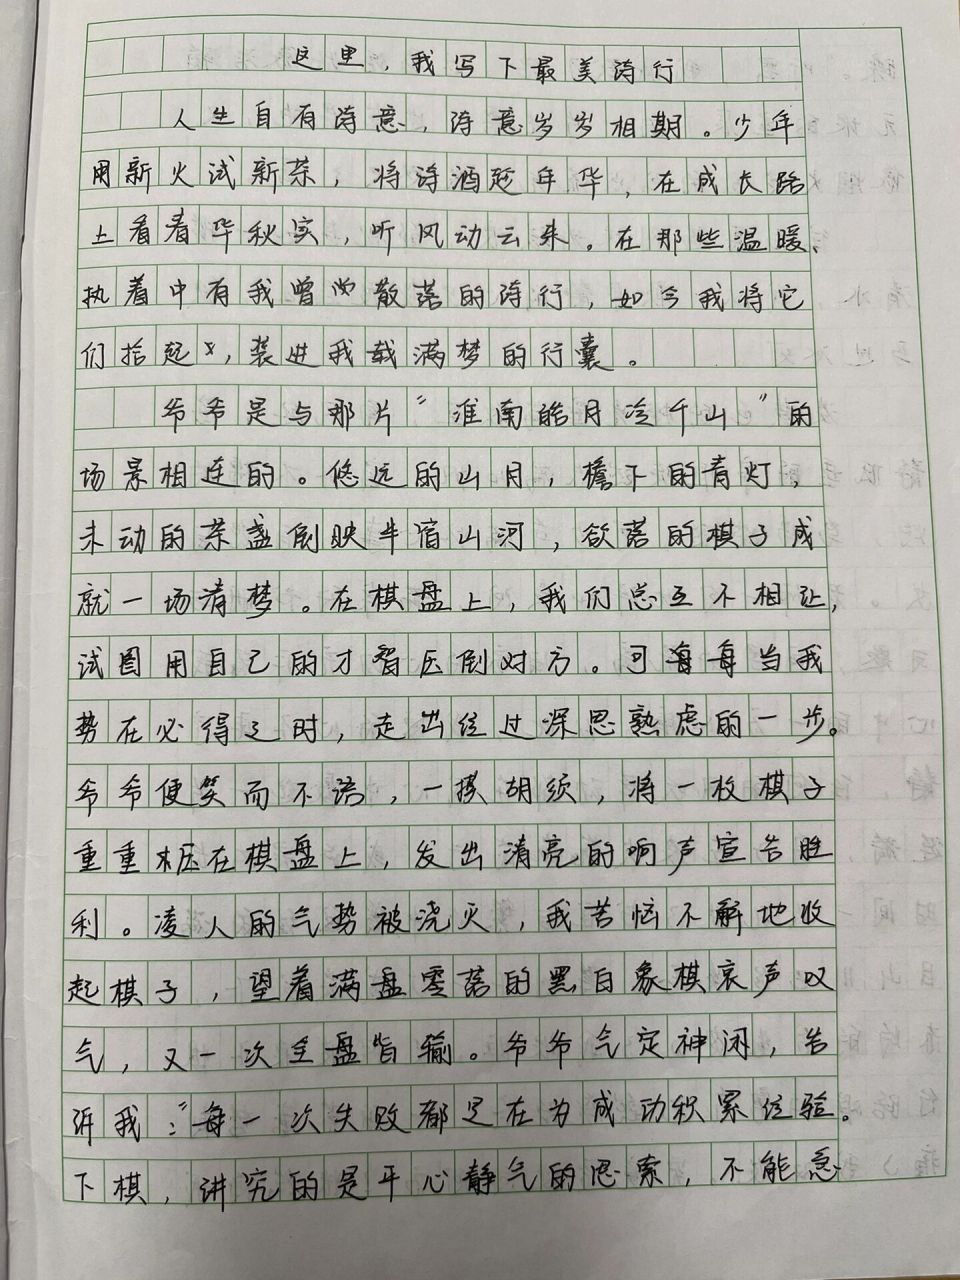 这里，我写下最美诗行
人生自有诗意，诗意岁岁相期。少年
用新火试新茶，将诗酒趁年华，在成长路
上看春华秋实，听风动云来。在那些温暖、
执着中有我曾经散落的诗行，如今我将它
们拾起，装进我载满梦的行囊。
爷爷是与那片“淮南皓月冷千山”的
场景相连的。悠远的山月，檐下的青灯，
未动的茶盏倒映牛宿山河，欲落的棋子成
就一场清梦。在棋盘上，我们总互不相让，
试图用自己的才智压倒对方。可每每当我
势在必得之时，走出经过深思熟虑的一步。
爷爷便笑而不语，一捋胡须，将一枚棋子
重重压在棋盘上，发出清亮的响声宣告胜
利。凌人的气势被浇灭，我苦恼不解地收
起棋子，望着满盘零落的黑白象棋哀声叹
气，又一次全盘皆输。爷爷气定神闲，告
诉我：“每一次失败都是在为成功积累经验。
下棋，讲究的是平心静气的思索，不能急